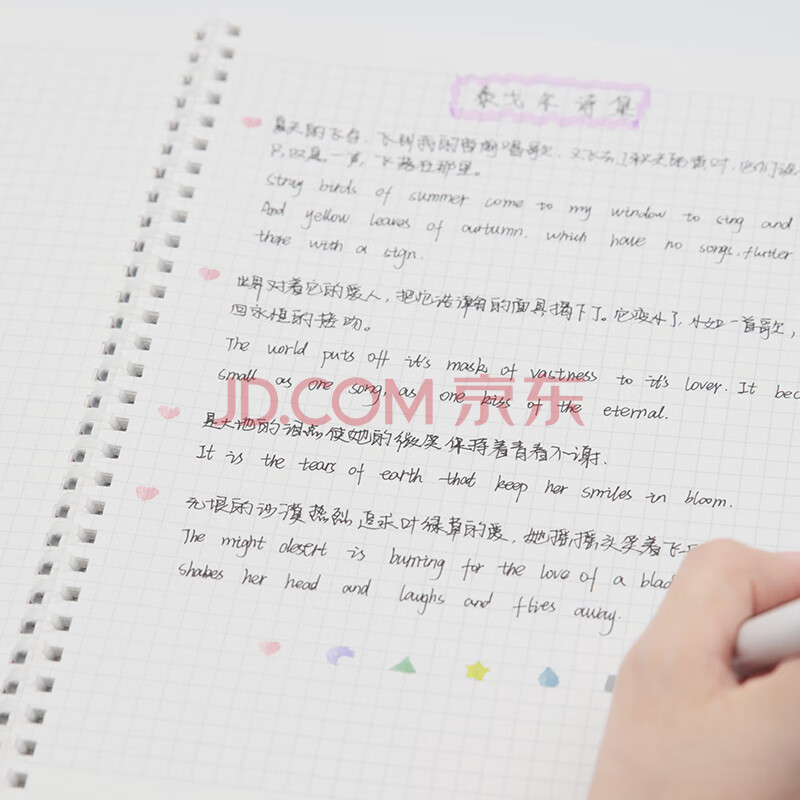 泰戈尔诗集
夏天的飞鸟，飞到我的窗前唱歌，又飞去了秋天的黄叶，它们没
只叹息一声，飞落在那里。
stray birds of summer come to my window to sing and
And yellow leaves of aurtumn. which have no songs.flutter
there with a sign.
世界对着它的爱人，把它浩渺的面具揭下了。它变小了，小如一首歌，
回永恒的接吻。
The world puts off it's mask of vastness to it's lover. It bec
small as one song, as one kiss of the eternal.
是大地的泪点使她的微笑保持着青春不谢.
It is the tears of earth that keep her smiles in bloom.
无垠的沙漠热烈追求叶绿草的爱，她摇摇头笑着飞
The might desert is burring for the love of a blad
shakes her head and laughs and flies away.
JD.COM 京东